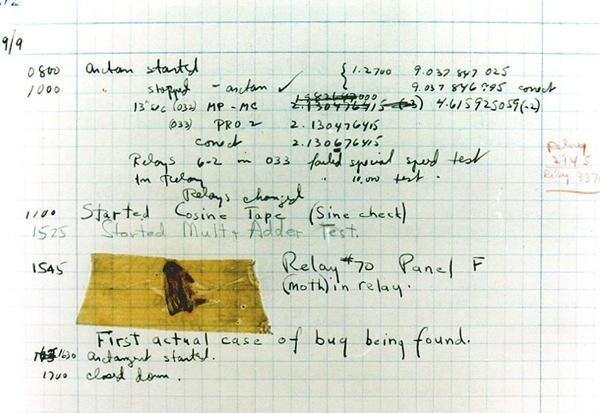 9/9
0800 Antan started { 1.2700 9.037 847 025
1000 " stopped - antan ✓ 9.037 846 995 conect
13"uc (032) MP - MC 2.130476415 (-3) 4.615925059(-2)
(033) PRO 2 2.130476415
conect 2.130676415
Relays 6-2 in 033 failed special speed test
In Relay " 10.000 test .
Relay
2145
Relay 337
Relays changed
1100 Started Cosine Tape (Sine check)
1525 Started Mult + Adder Test.
1545 Relay #70 Panel F
(moth) in relay.
First actual case of bug being found.
1630 antangent started.
1700 closed down.